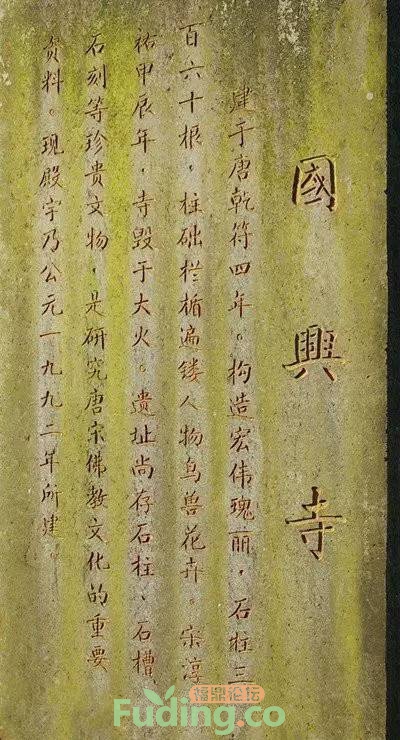 國興寺
建于唐乾符四年。构造宏伟瑰丽，石柱三
百六十根，柱础栏楯遍镂人物鸟兽花卉。宋淳
祐甲辰年，寺毁于大火。遗址尚存石柱、石槽、
石刻等珍贵文物，是研究唐宋佛教文化的重要
资料。现殿宇乃公元一九九二年所建。
福鼎论坛
Fuding.co